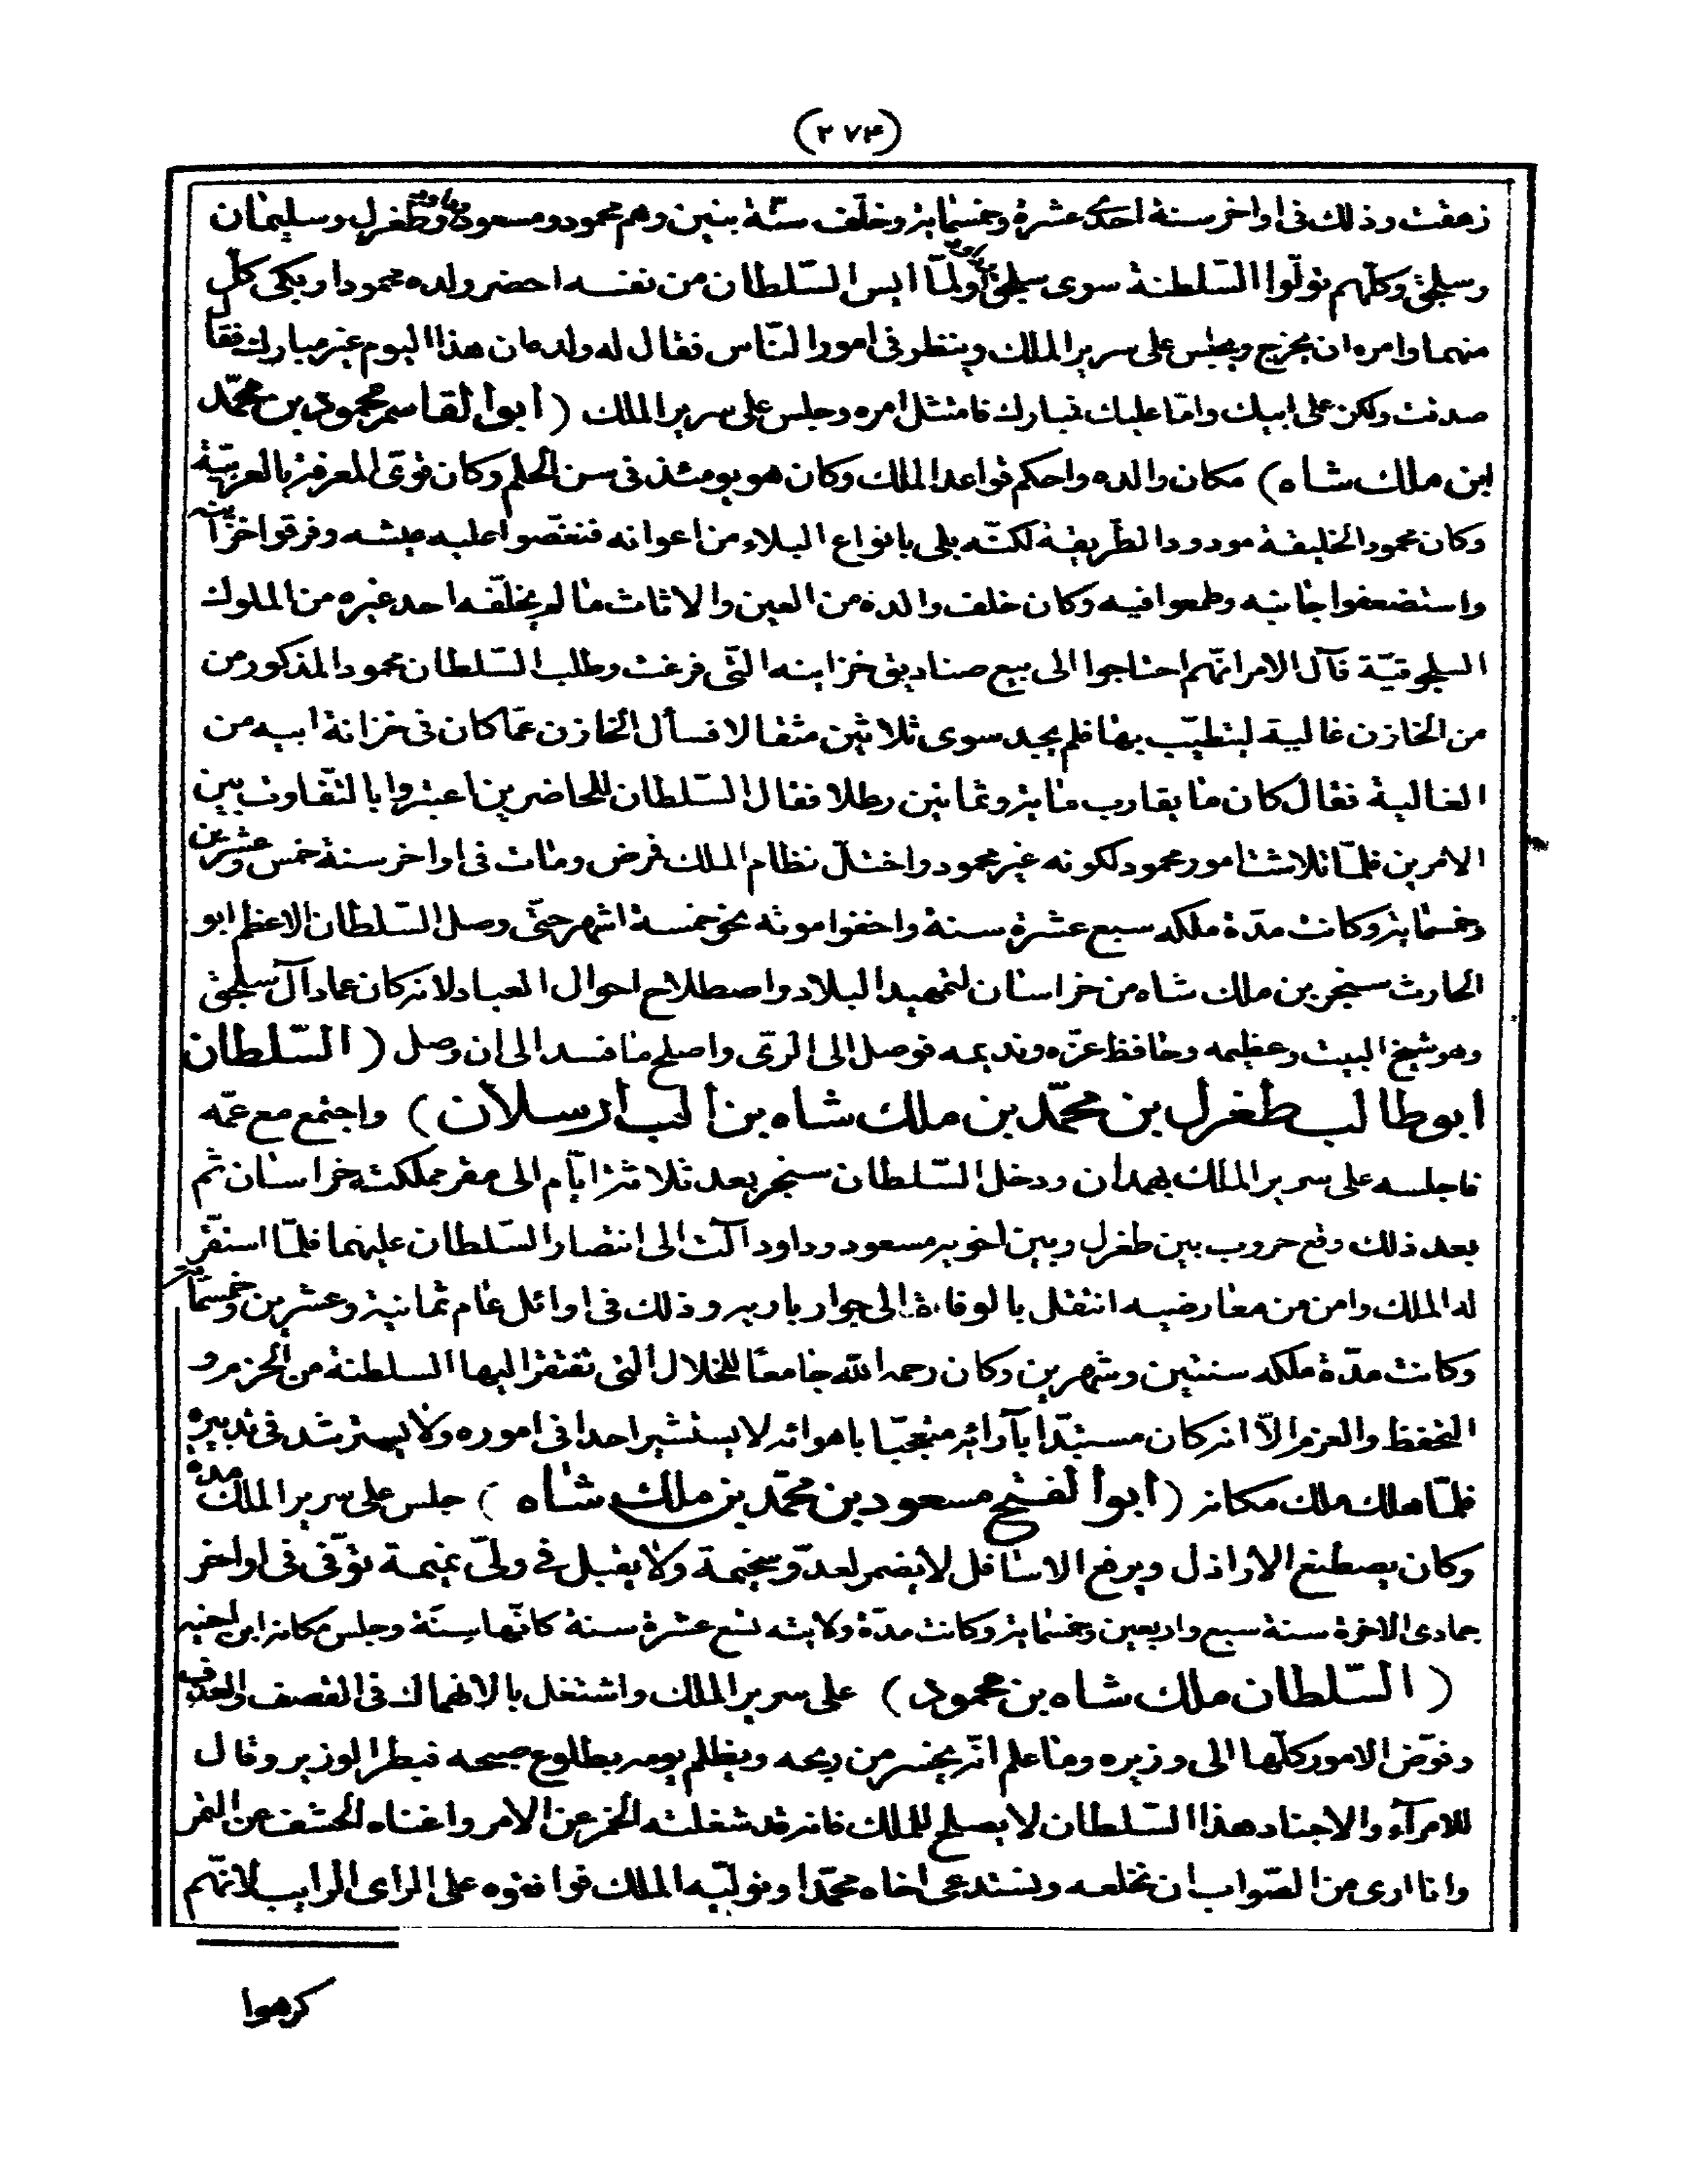 (٢٧٤)
زهقت وذلك فى اواخر سنة احدى عشرة وخمسمایة وخلّف ستّة بنین وهم محمود ومسعود وطغرل وسلیمان
وسلجق وكلّهم تولّوا السّلطنة سوى سلجق ولمّا ایس السّلطان من نفسه احضر ولده محمودا وبكى كلّ
منهما وامره ان یخرج ویجلس على سریر الملك وینظر فى امور النّاس فقال له ولده ان هذا الیوم غیر مبارك فقال
صدقت ولكن على ابیك وامّا علیك فمبارك فامتثل امره وجلس على سریر الملك (ابوالقاسم محمود بن محمّد
ابن ملك شاه) مكان والده واحكم قواعد الملك وكان هو یومئذ فى سن الحلم وكان قوىّ المعرفة بالعربیّة
وكان محمود الخلیقة مودود الطّریقة لكنّه بلى بانواع البلاء من اعوانه فنغّصوا علیه عیشه وفرقوا خزآینه
واستضعفوا جانبه وطمعوا فیه وكان خلف والده من العین والاثاث ما لم یخلّفه احد غیره من الملوك
السلجوقیّة فآل الامر انّهم احتاجوا الى بیع صنادیق خزاینه الّتى فرغت وطلب السّلطان محمود المذكور من
من الخازن غالیة لیتطیّب بها فلم یجد سوى ثلاثین مثقالا فسأل الخازن عمّا كان فى خزانة ابیه من
الغالیة فقال كان ما یقارب مایة وثمانین رطلا فقال السّلطان للحاضرین اعتبروا بالتّفاوت بین
الامرین فلمّا تلاشت امور محمود لكونه غیر محمود واختلّ نظام الملك فرض ومات فى اواخر سنة خمس وعشرین
وخمسمایة وكانت مدّة ملكه سبع عشرة سنة واخفوا موته نحو خمسة اشهر حتّى وصل السّلطان الاعظم ابو
الحارث سنجر بن ملك شاه من خراسان لتمهید البلاد واصطلاح احوال العباد لانه كان عماد آل سلجق
وهو شیخ البیت وعظیمه وحافظ عزّه وندیمه فوصل الى الرّى واصلح ما فسد الى ان وصل (السّلطان
ابوطالب طغرل بن محمّد بن ملك شاه بن الب ارسلان) واجتمع مع عمّه
فاجلسه على سریر الملك بهمدان ودخل السّلطان سنجر بعد ثلاثة ایّام الى مقر مملكته خراسان ثم
بعد ذلك وقع حروب بین طغرل وبین اخویه مسعود وداود آلت الى انتصار السّلطان علیهما فلمّا استقّر
له الملك وامن من معارضیه انتقل بالوفاة الى جوار باریه وذلك فى اوائل عام ثمانیة وعشرین وخمسمایة
وكانت مدّة ملكه سنتین وشهرین وكان رحمه اللّه جامعًا للخلال التى تفتقر الیها السلطنة من الحزم و
التحفظ والعزم الّا انه كان مستبّدا بآرائه متعجّبا باهوائه لا یستشیر احدا فى اموره ولا یسترشد فى تدبیره
فلمّا هلك ملك مكانه (ابوالفتح مسعود بن محمّد بن ملك شاه) جلس على سریر الملك مدة
وكان یصطنع الاراذل ویرفع الاسافل لا یضمر لعدوّ سخیمة ولا یقبل فى ولىّ نمیمة توّفى فى اواخر
جمادى الاخرة سنة سبع واربعین وخمسمایة وكانت مدّة ولایته تسع عشرة سنة كانّها سِنَة وجلس مكانه ابن اخیه
(السّلطان ملك شاه بن محمود) على سریر الملك واشتغل بالانهماك فى القصف والعزف
وفوّض الامور كلّها الى وزیره وما علم انّه یخسر من ربحه ویظلم یومه بطلوع صبحه فبطر الوزیر وقال
للامرآء والاجناد هذا السّلطان لا یصلح للملك فانه قد شغلته الخمر عن الامر واغناه الحشف عن التمر
وانا ارى من الصّواب ان نخلعه ونستدعى اخاه محمّدا ونولّیه الملك فوافقوه على الراى الرایب لانّهم
كرهوا